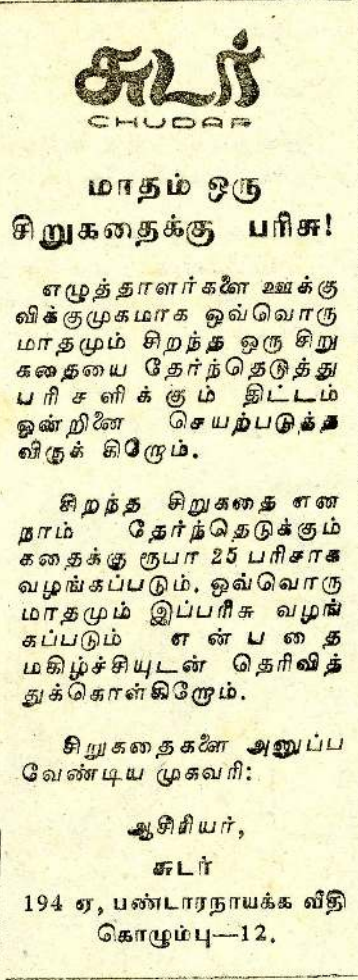 சுடர்
CHUDAR
மாதம் ஒரு
சிறுகதைக்கு பரிசு!
எழுத்தாளர்களை ஊக்கு
விக்குமுகமாக ஒவ்வொரு
மாதமும் சிறந்த ஒரு சிறு
கதையை தேர்ந்தெடுத்து
பரிசளிக்கும் திட்டம்
ஒன்றினை செயற்படுத்த
விருக் கிறோம்.
சிறந்த சிறுகதை என
நாம் தேர்ந்தெடுக்கும்
கதைக்கு ரூபா 25 பரிசாக
வழங்கப்படும். ஒவ்வொரு
மாதமும் இப்பரிசு வழங்
கப்படும் என்பதை
மகிழ்ச்சியுடன் தெரிவித்
துக்கொள்கிறோம்.
சிறுகதைகளை அனுப்ப
வேண்டிய முகவரி:
ஆசிரியர்,
சுடர்
194 ஏ, பண்டாரநாயக்க வீதி
கொழும்பு—12.